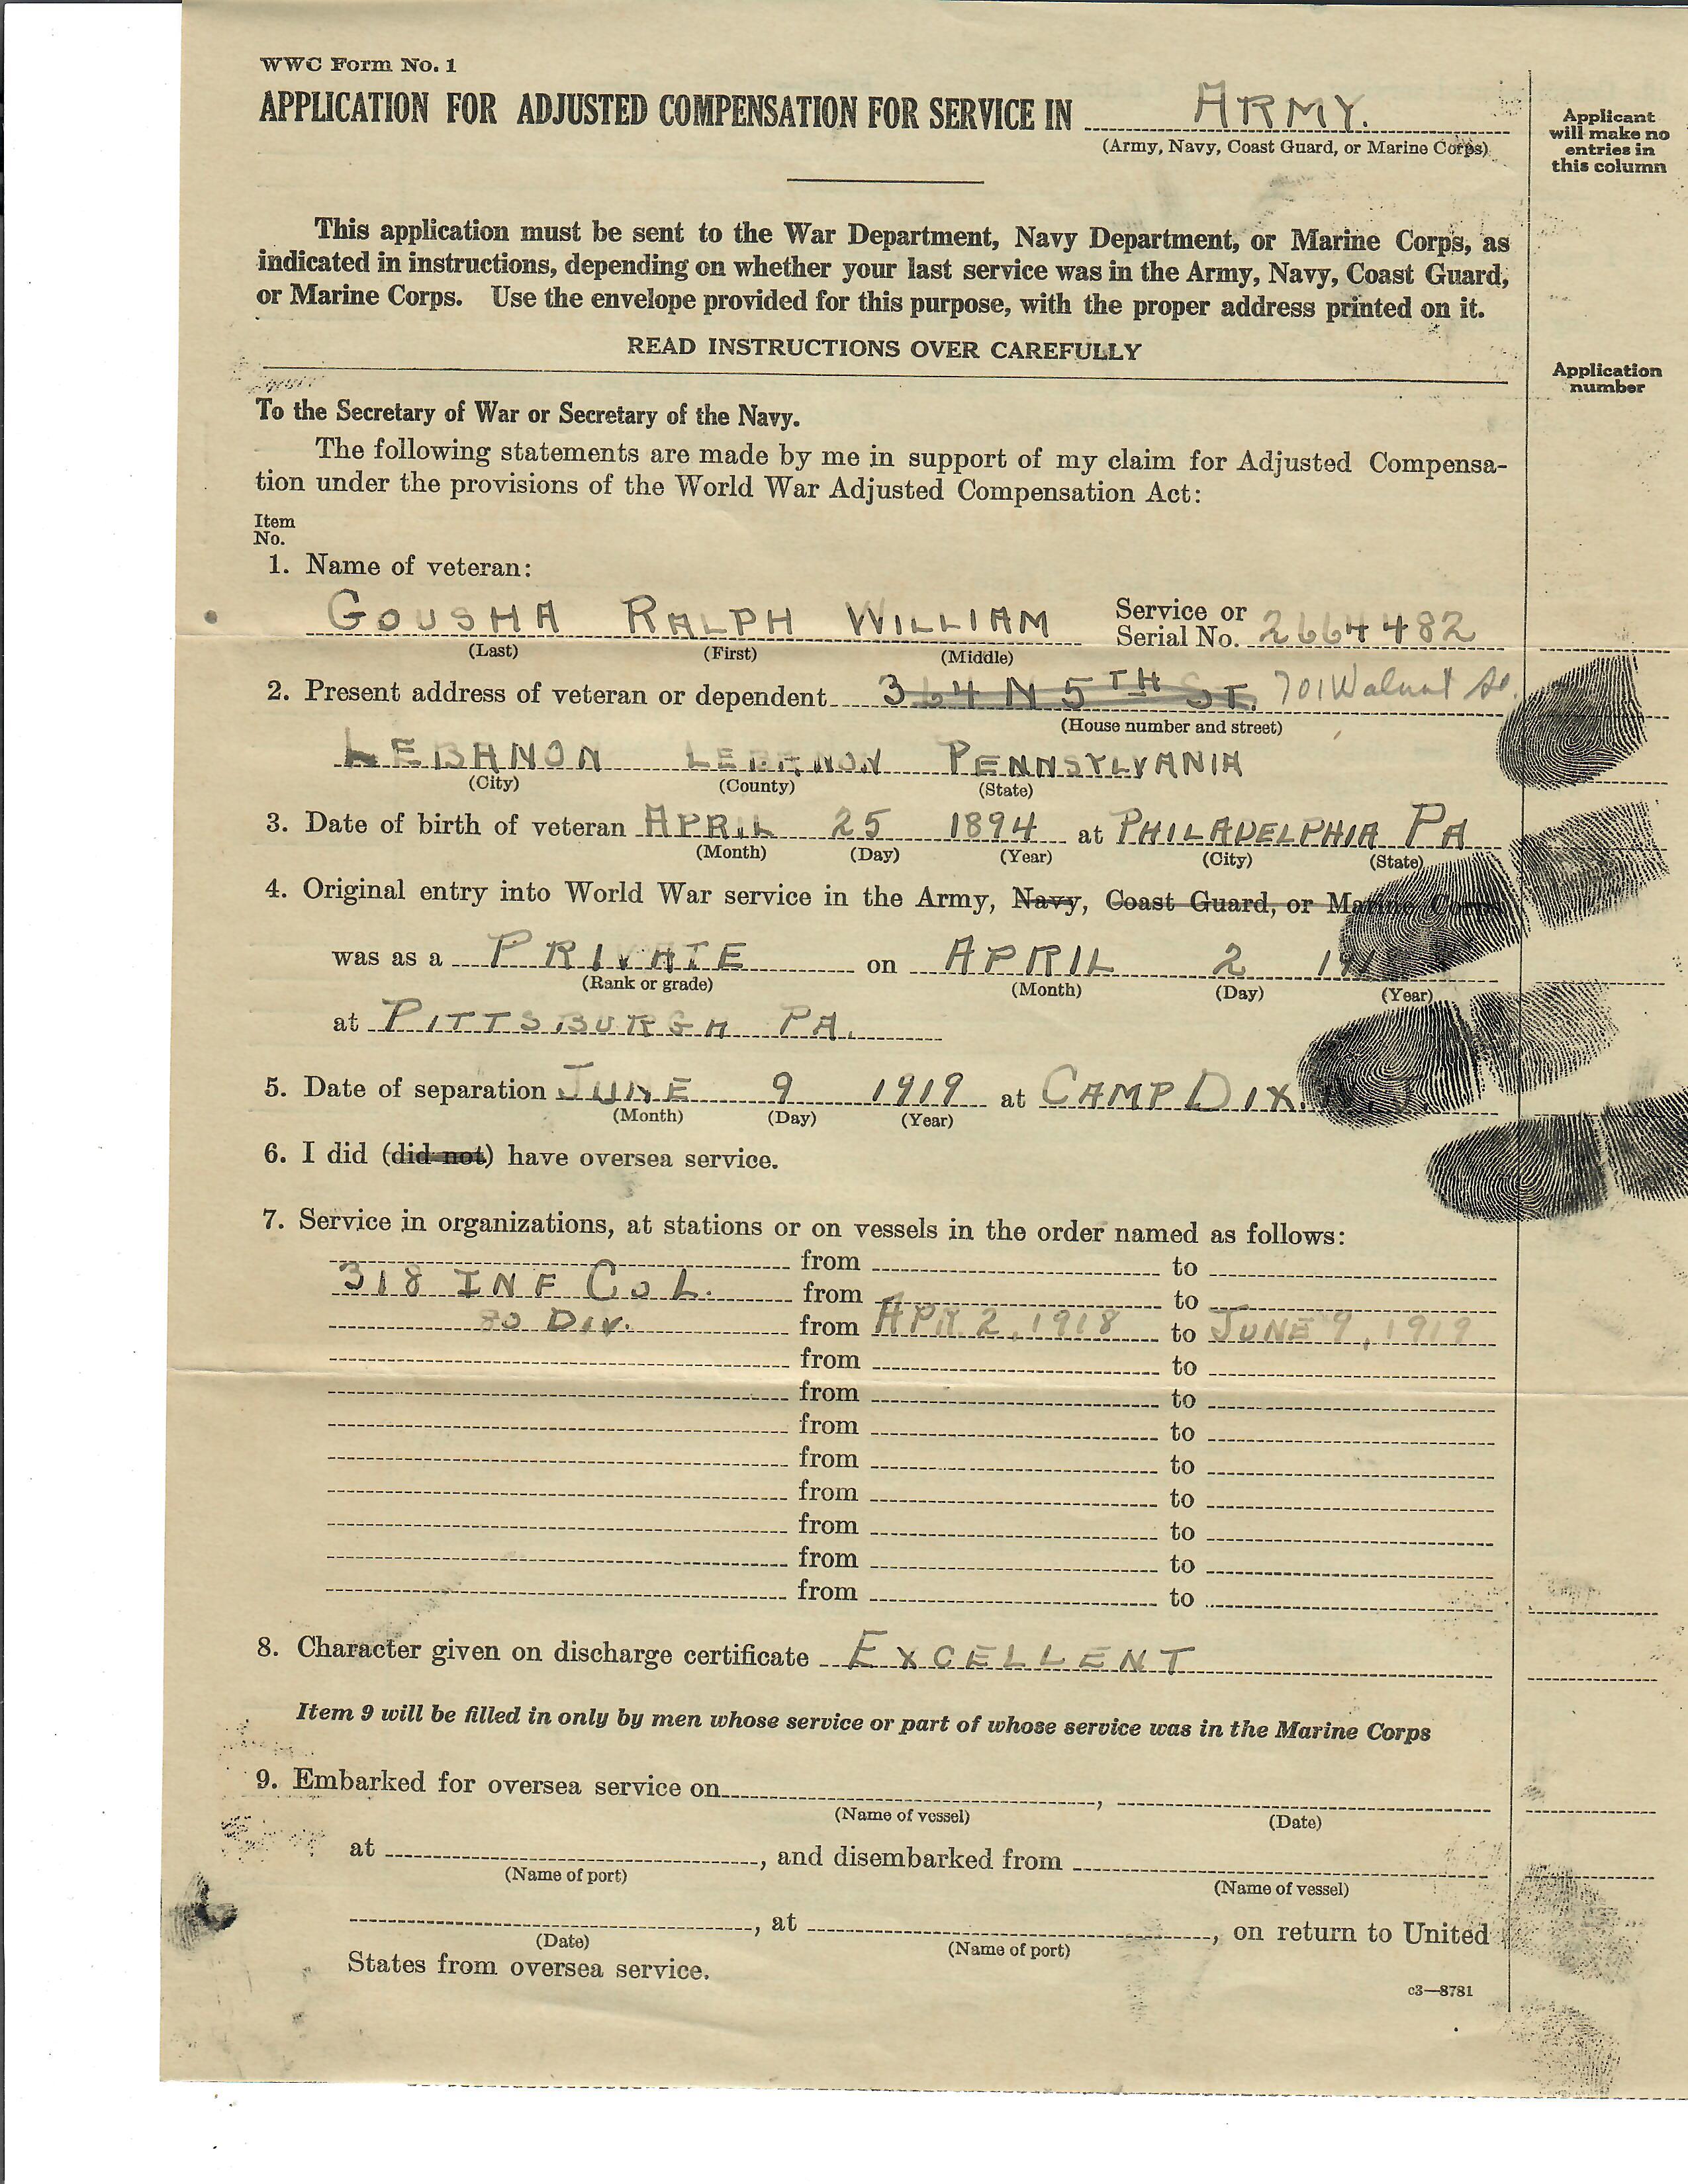 WWC Form No. 1
APPLICATION FOR ADJUSTED COMPENSATION FOR SERVICE IN ARMY.
(Army, Navy, Coast Guard, or Marine Corps)
Applicant
will make no
entries in
this column
This application must be sent to the War Department, Navy Department, or Marine Corps, as
indicated in instructions, depending on whether your last service was in the Army, Navy, Coast Guard,
or Marine Corps. Use the envelope provided for this purpose, with the proper address printed on it.
READ INSTRUCTIONS OVER CAREFULLY
Application
number
To the Secretary of War or Secretary of the Navy.
The following statements are made by me in support of my claim for Adjusted Compensa-
tion under the provisions of the World War Adjusted Compensation Act:
Item
No.
1. Name of veteran:
GOUSHA RALPH WILLIAM Service or
Serial No. 2664482
(Last) (First) (Middle)
2. Present address of veteran or dependent 364 N 5TH ST. 701 Walnut St.
(House number and street)
LEBANON LEBANON PENNSYLVANIA
(City) (County) (State)
3. Date of birth of veteran APRIL 25 1894 at PHILADELPHIA PA
(Month) (Day) (Year) (City) (State)
4. Original entry into World War service in the Army, Navy, Coast Guard, or Marine Corps
was as a PRIVATE on APRIL 2 1918
(Rank or grade) (Month) (Day) (Year)
at PITTSBURGH PA.
5. Date of separation JUNE 9 1919 at CAMP DIX. N.J.
(Month) (Day) (Year)
6. I did (did not) have oversea service.
7. Service in organizations, at stations or on vessels in the order named as follows:
from to
318 INF CO L. from to
80 DIV. from APR. 2, 1918 to JUNE 9, 1919
from to
from to
from to
from to
from to
from to
from to
from to
8. Character given on discharge certificate EXCELLENT
Item 9 will be filled in only by men whose service or part of whose service was in the Marine Corps
9. Embarked for oversea service on ,
(Name of vessel) (Date)
at , and disembarked from
(Name of port) (Name of vessel)
, at , on return to United
(Date) (Name of port)
States from oversea service.
c3—8781